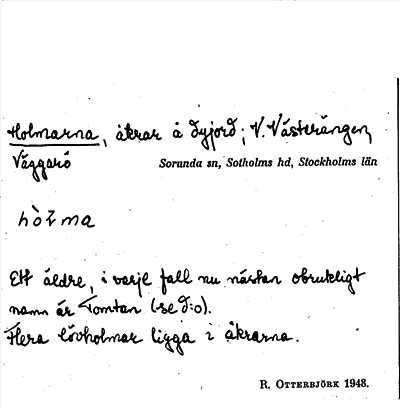 Holmarna, åkrar å dyjord; V. Västerängen,
Väggarö Sorunda sn, Sotholms hd, Stockholms län
hòɫma
Ett äldre, i varje fall nu nästan obrukligt
namn är Tomtan (se d:o).
Flera lövholmar ligga i åkrarna.
R. OTTERBJÖRK 1948.